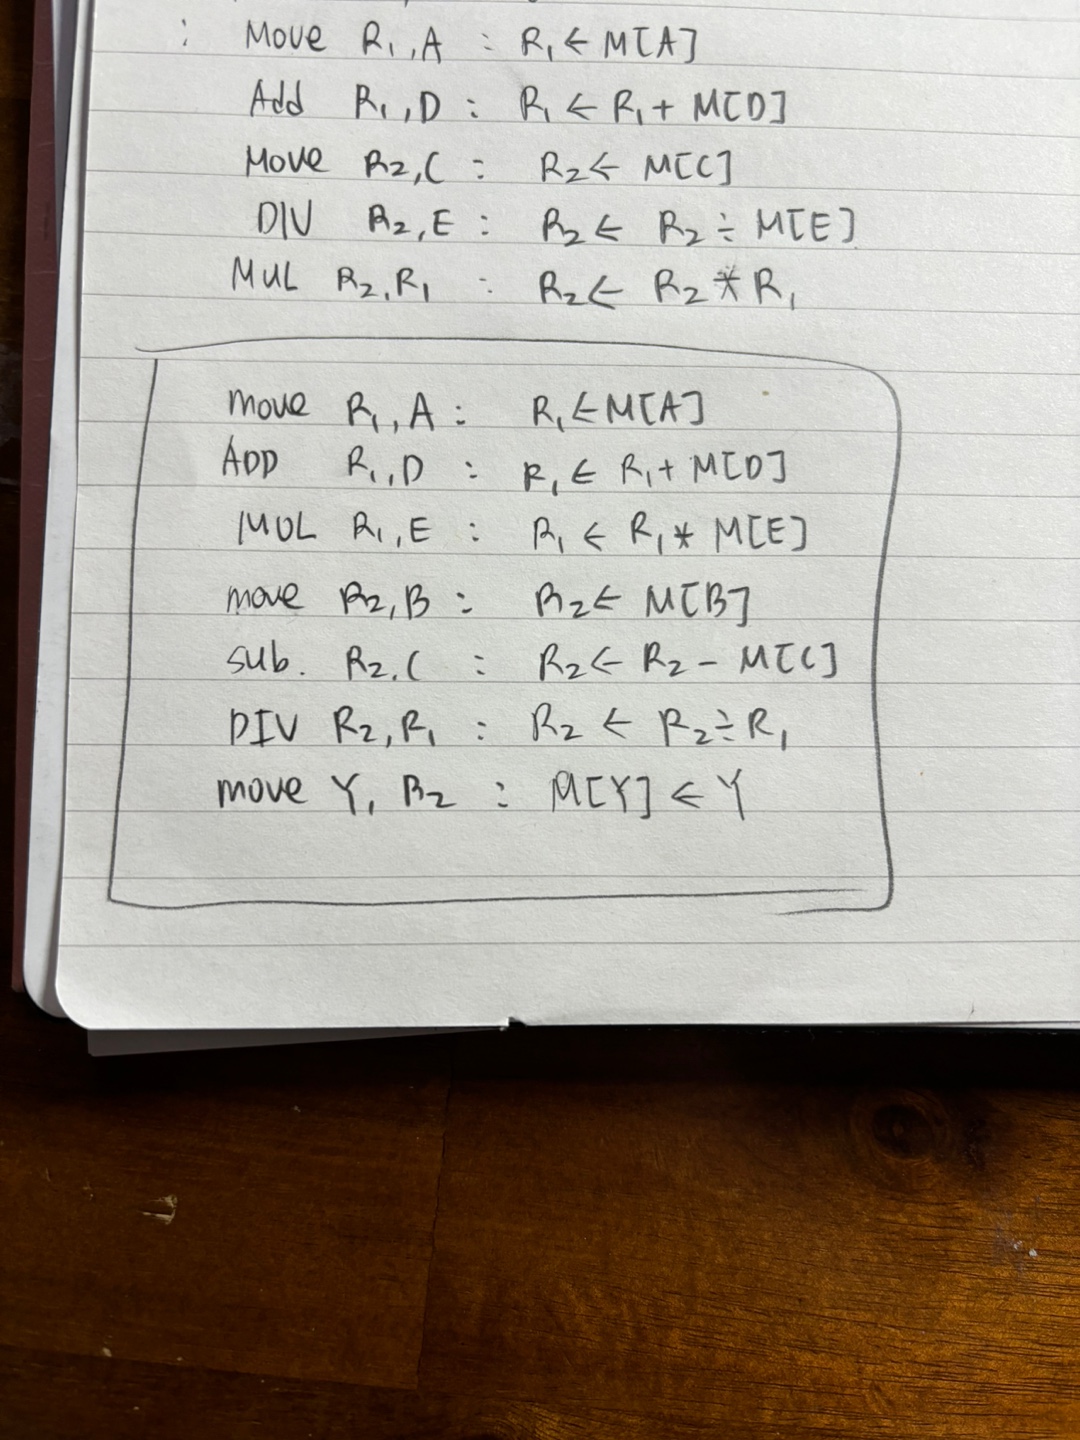 : Move R₁,A : R₁ ← M[A]
Add R₁,D : R₁ ← R₁ + M[D]
Move R₂,C : R₂ ← M[C]
DIV R₂,E : R₂ ← R₂ ÷ M[E]
MUL R₂,R₁ : R₂ ← R₂ * R₁
move R₁,A : R₁ ← M[A]
ADD R₁,D : R₁ ← R₁ + M[D]
MUL R₁,E : R₁ ← R₁ * M[E]
move R₂,B : R₂ ← M[B]
sub. R₂.C : R₂ ← R₂ - M[C]
DIV R₂,R₁ : R₂ ← R₂ ÷ R₁
move Y, R₂ : M[Y] ← Y